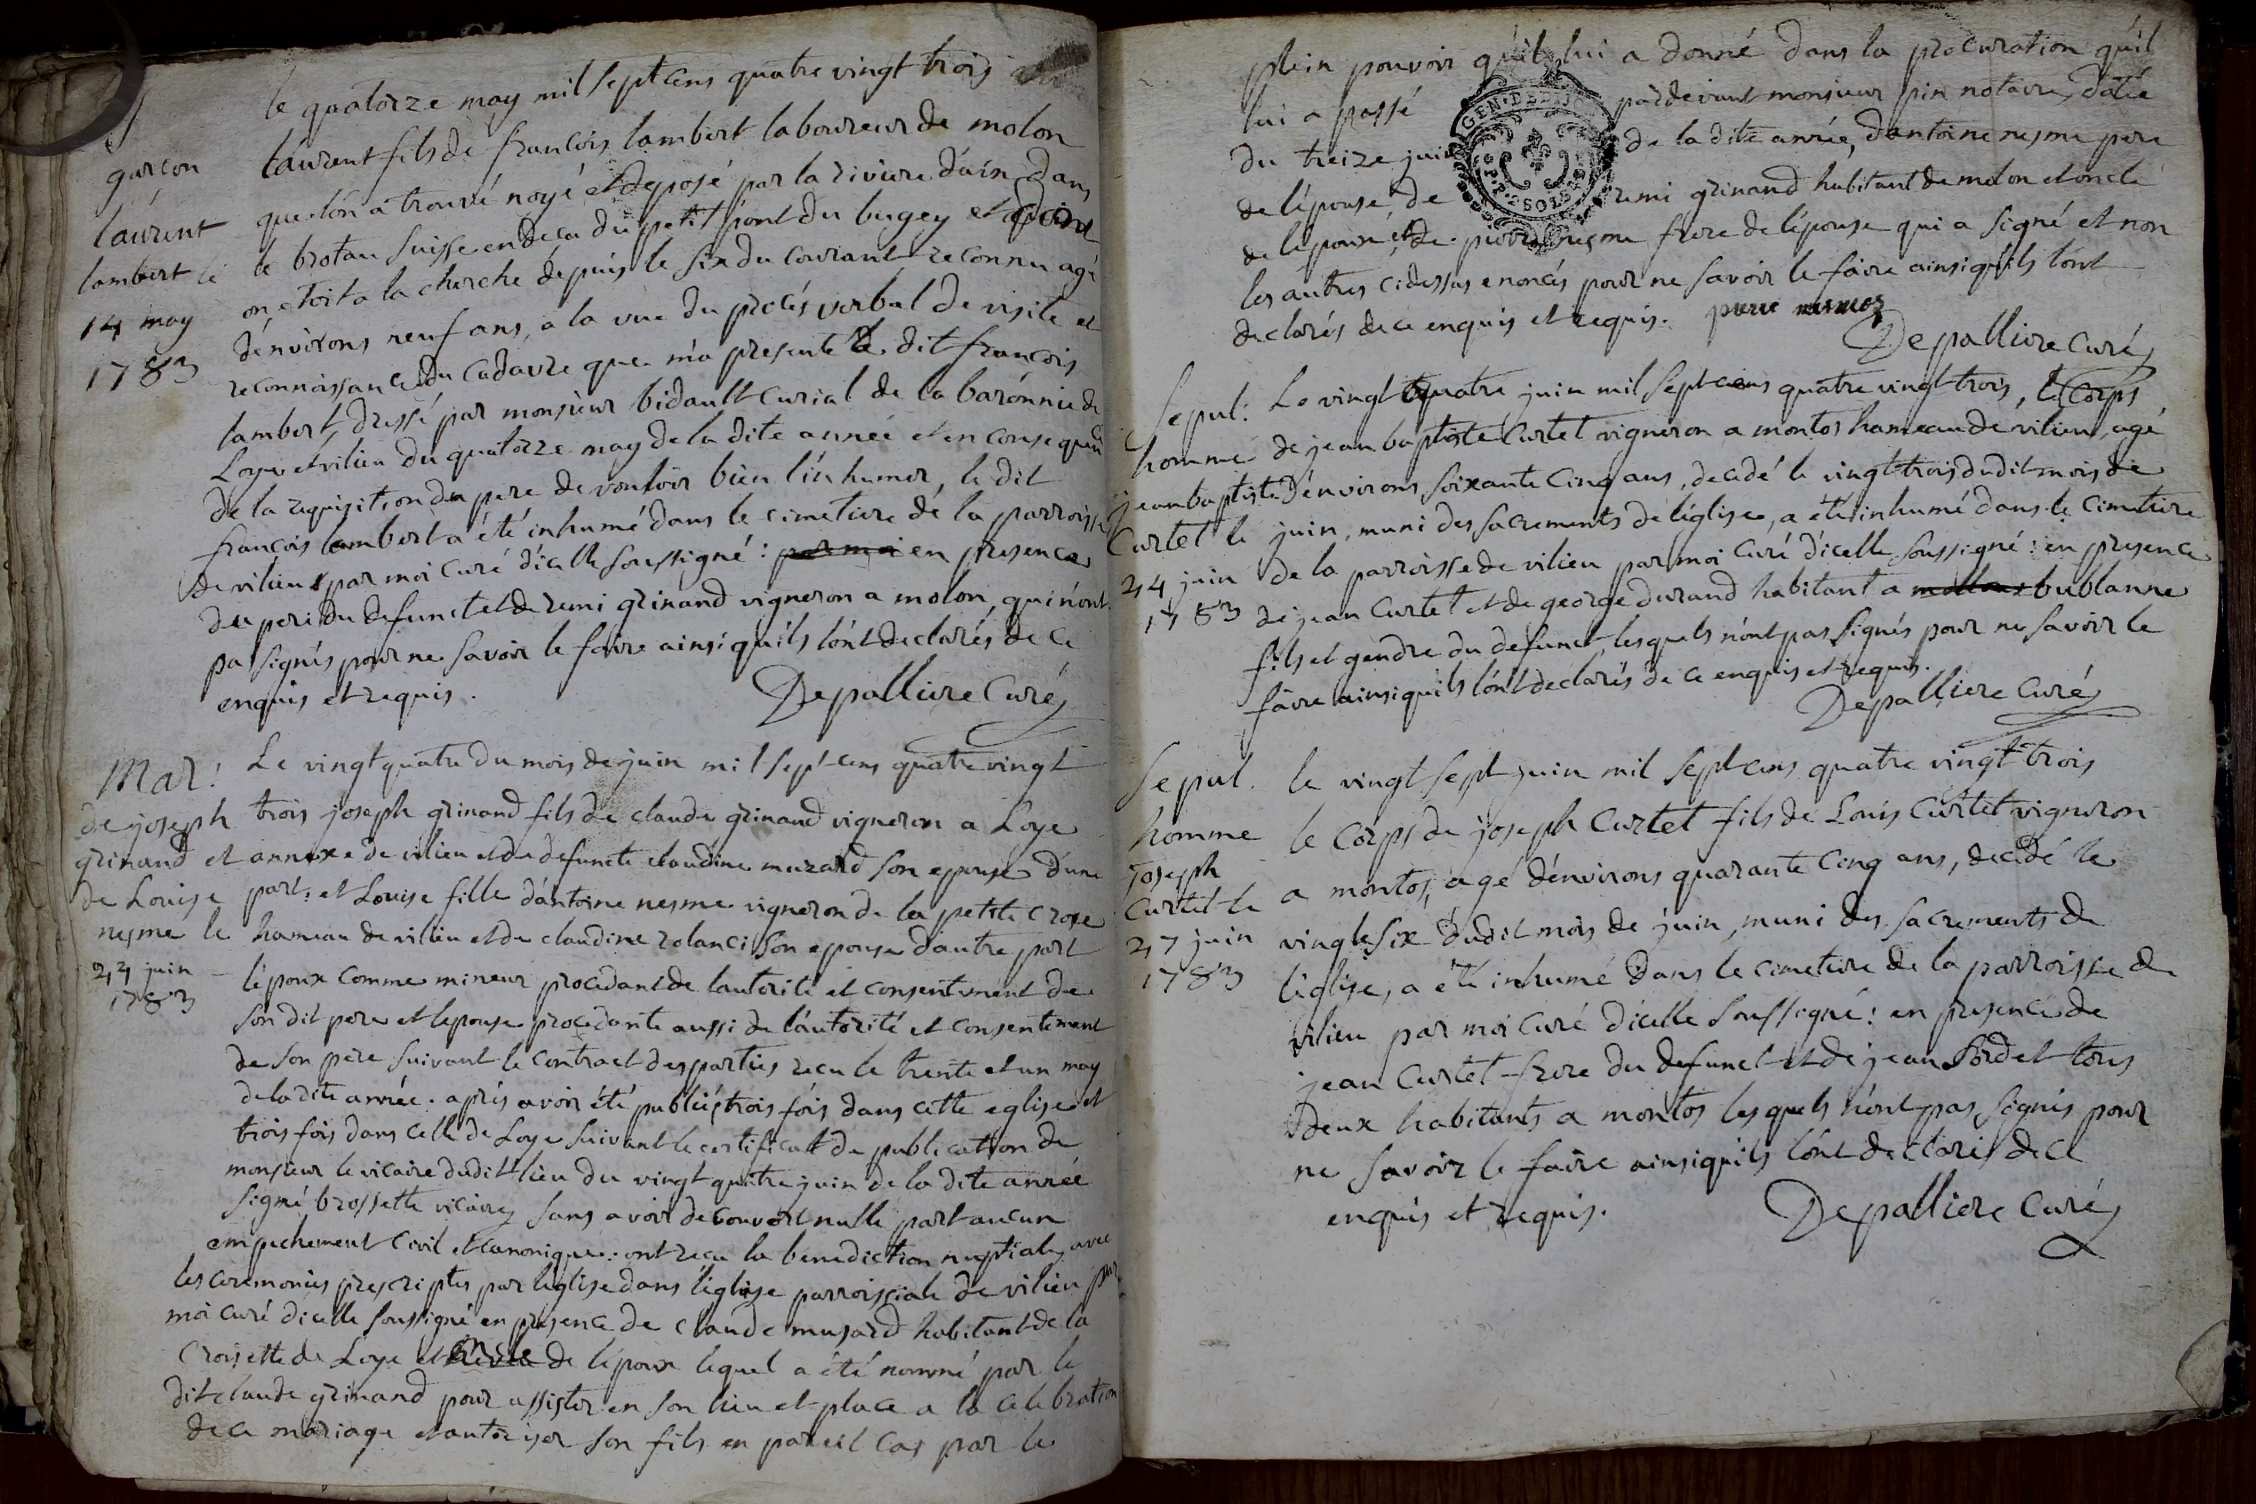 le quatorze may mil sept cens quatre vingt trois
garçon
laurent fils de françois lambert laboureur de molon
laurent
que l'on a trouvé noyé et deposé par la riviere d'ain dans
lambert le
le brotau suisse en deca du petit pont du bugey et dont
14 may
on etoit a la cherche depuis le six du courant reconnu agé
1783
d'environs neuf ans, a la vue du procés verbal de visite et
reconnoissance du cadavre que m'a presenté le dit françois
lambert, dressé par monsieur bidault curial de la baronnie de
Loye et vilieu du quatorze may de la dite année et en consequence
de la requisition du pere de vouloir bien l'inhumer, le dit
françois lambert a été inhumé dans le cimetiere de la parroisse
de vilieu par moi curé d'icelle soussigné : par moi en presence
du pere du defunct et de remi grinand vigneron a molon, qui n'ont
pas signés pour ne savoir le faire ainsi qu'ils l'ont declarés de ce
enquis et requis.
Depalliere Curé
Mar:
Le vingt quatre du mois de juin mil sept cens quatre vingt
de joseph
trois joseph grinand fils de claude grinand vigneron a Loye
grinand et
annexe de vilieu et de defuncte claudine muzard son epouse d'une
de Louise
part: et Louise fille d'antoine nesme vigneron de la petite croze
nesme le
hameau de vilieu et de claudine rolanci son epouse d'autre part
24 juin
l'epoux comme mineur procedant de l'autorité et consentement de
1783
son dit pere et l'epouse procedante aussi de l'autorité et consentement
de son pere suivant le contract des parties recu le trente et un may
de la dite année. aprés avoir été publiés trois fois dans cette eglise et
trois fois dans celle de Loye suivant le certificat de publication de
monsieur le vicaire dudit lieu du vingt quatre juin de la dite année
signé brossette vicaire, sans avoir decouvert nulle part aucun
empechement civil et canonique: ont recu la benediction nuptiale, avec
les ceremonies prescriptes par l'eglise dans l'eglise parroissiale de vilieu par
moi curé d'icelle soussigné en presence de claude musard habitant de la
croisette de Loye et oncle de l'epoux lequel a été nommé par le
dit claude grinand pour assister en son lieu et place a la celebration
de ce mariage et autoriser son fils en pareil cas par le
plein pouvoir qu'il lui a donné dans la procuration qu'il
lui a passé pardevant monsieur pin notaire, datée
du treize juin de la dite année, d'antoine nesme pere
de l'épouse, de remi grinand habitant de molon et oncle
de l'epoux, et de pierre nesme frere de l'épouse qui a signé et non
les autres cidessus enoncés pour ne savoir le faire ainsi qu'ils l'ont
declarés de ce enquis et requis. piere nesme
Depalliere Curé
Sepul:
Le vingt quatre juin mil sept cens quatre vingt trois, le corps
homme
de jean baptiste Curtet vigneron a montos hameau de vilieu, agé
jean baptiste
d'environs soixante cinq ans, decedé le vingt trois dudit mois de
Curtet le
juin, muni des sacrements de l'église, a été inhumé dans le cimetiere
24 juin
de la parroisse de vilieu par moi curé d'icelle soussigné: en presence
1783
de jean Curtet et de george durand habitant a bublanne
fils et gendre du defunct, lesquels n'ont pas signés pour ne savoir le
faire ainsi qu'ils l'ont declarés de ce enquis et requis.
Depalliere Curé
Sepul.
le vingt sept juin mil sept cens quatre vingt trois
homme
le corps de joseph Curtet fils de Louis Curtet vigneron
joseph
a montos, agé d'environs quarante cinq ans, decedé le
Curtet le
27 juin
vingt six dudit mois de juin, muni des sacrements de
1783
l'église, a été inhumé dans le cimetiere de la parroisse de
vilieu par moi curé d'icelle soussigné: en presence de
jean Curtet frere du defunct et de jean Sordet tous
deux habitants a montos lesquels n'ont pas signés pour
ne savoir le faire ainsi qu'ils l'ont declarés de ce
enquis et requis.
Depalliere Curé